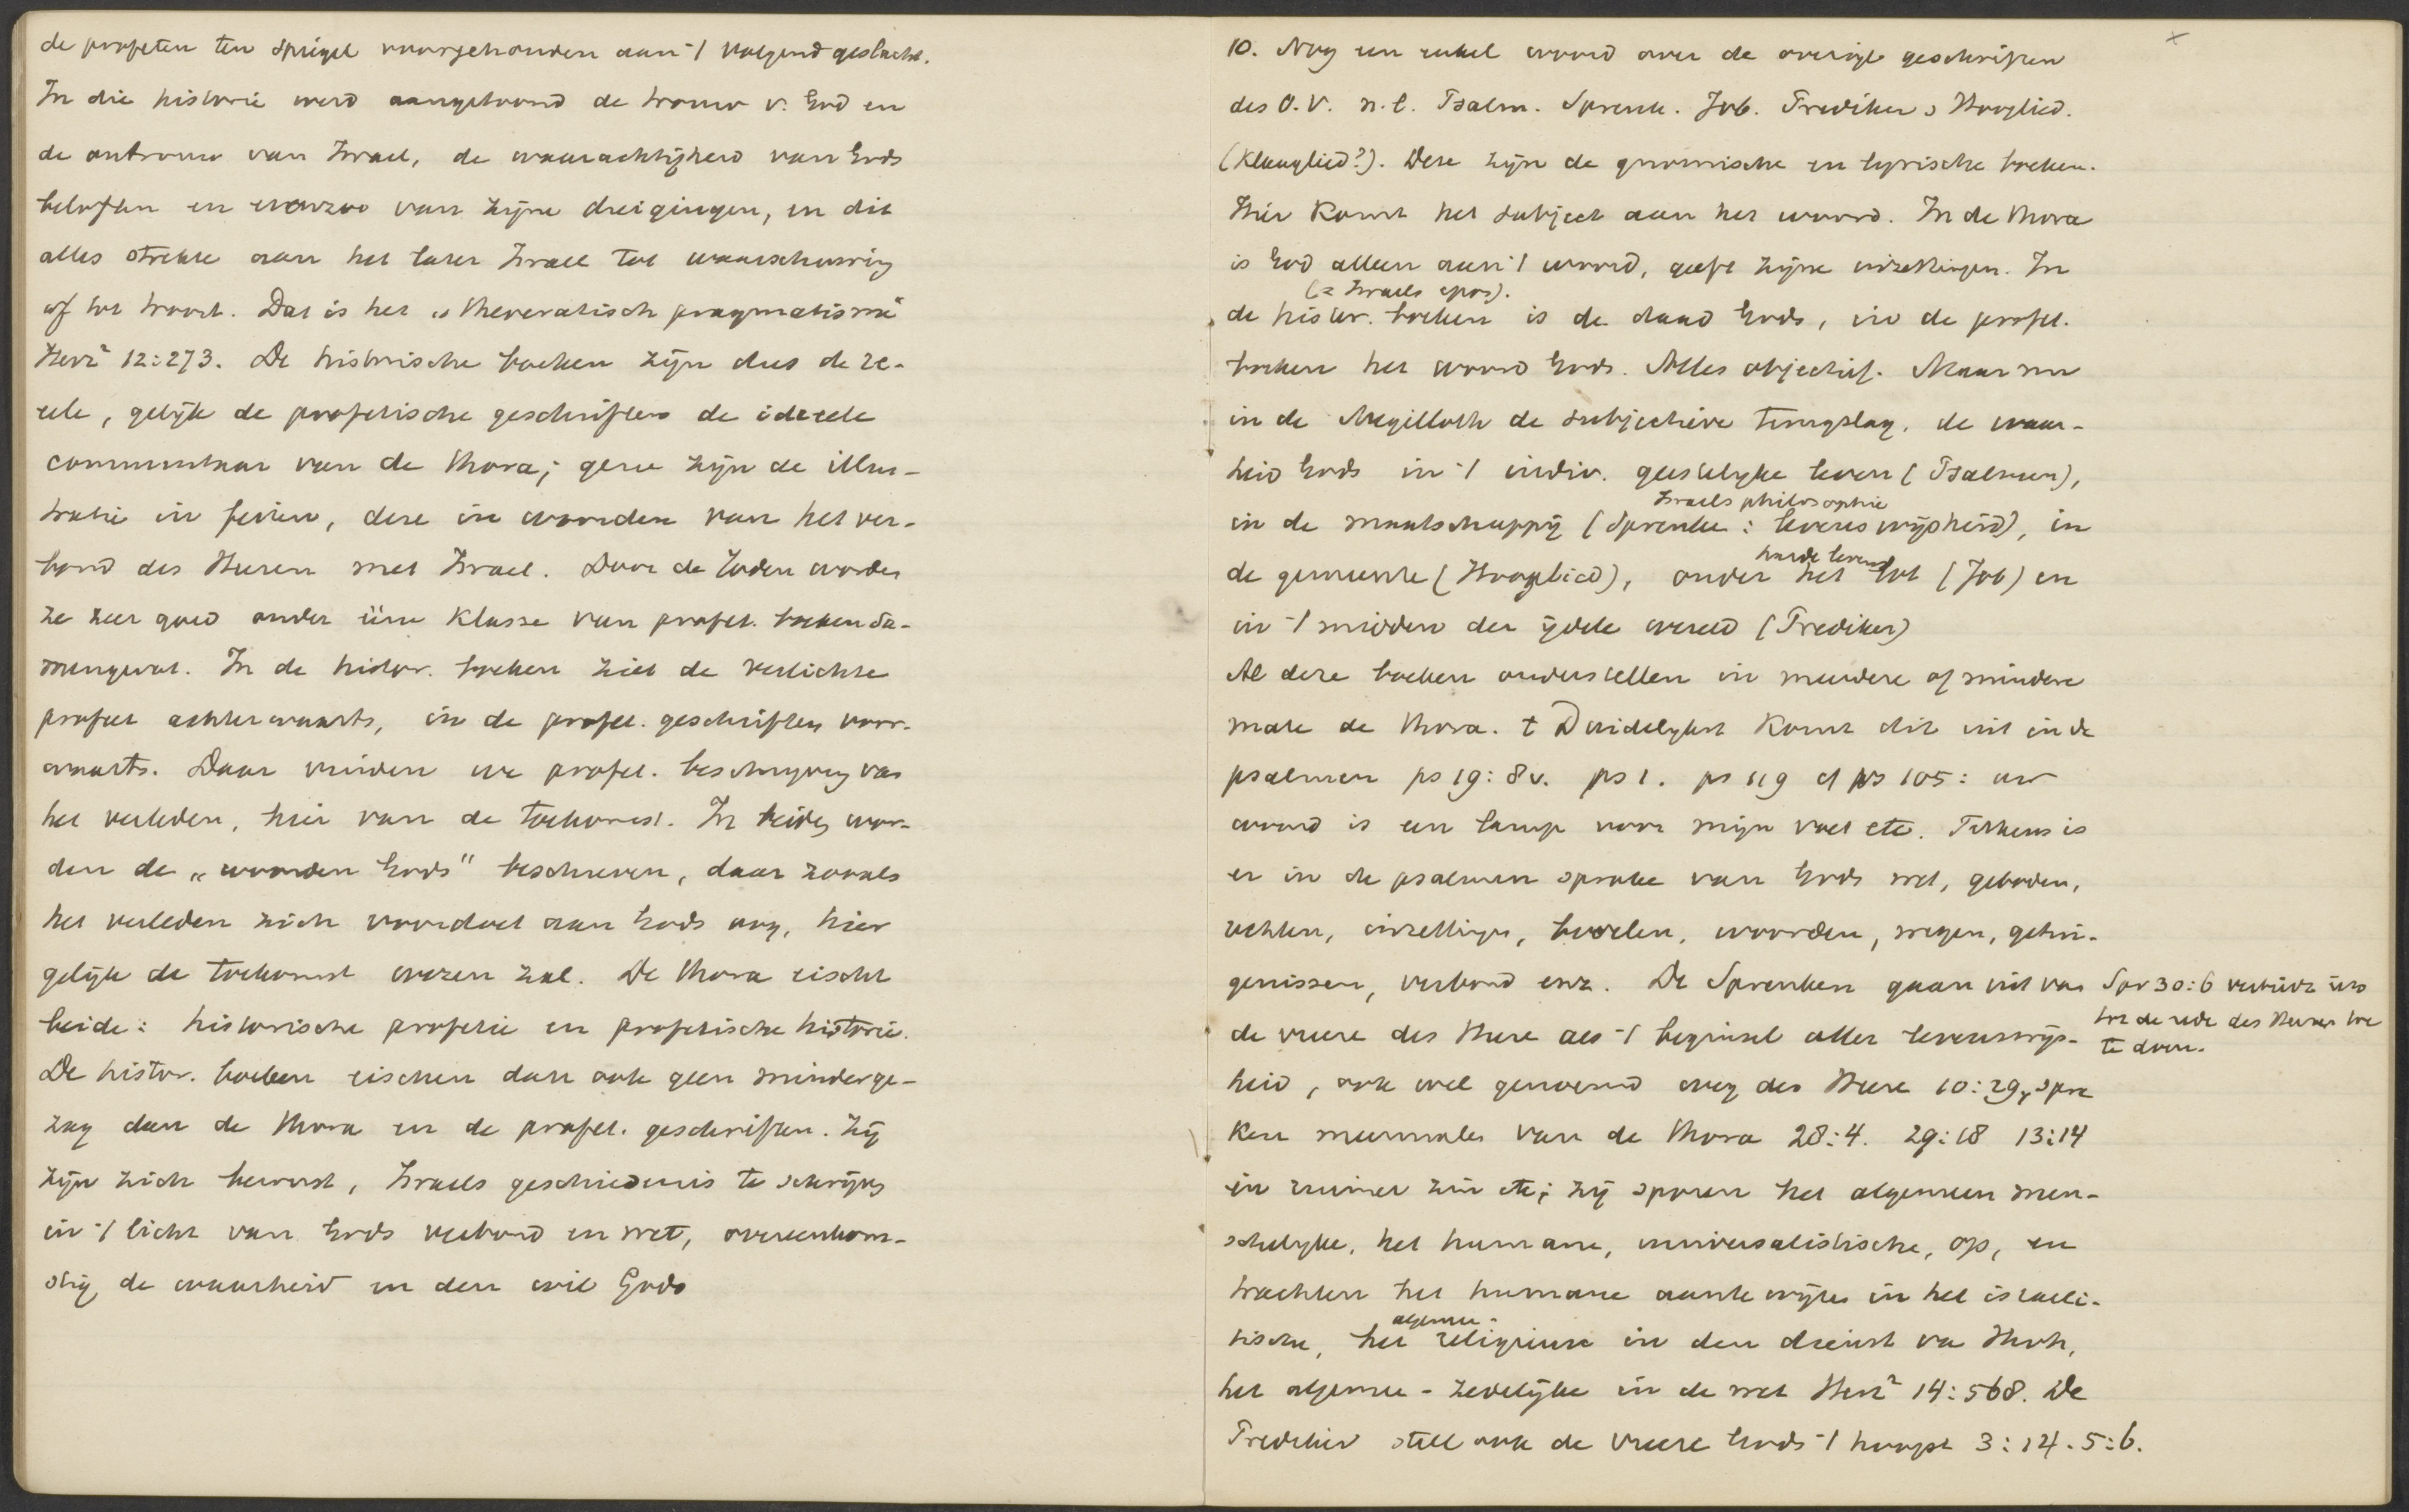 de profeten ten spiegel voorgehouden aan 't volgend geslacht.
In die historie werd aangetoond de trouw v. God en
de ontrouw van Israel, de waarachtigheid van Gods
beloften en evenzoo van zijne dreigingen, en dit
alles strekte aan het later Israel tot waarschuwing
of tot troost. Dat is het „theocratisch pragmatisme"
Herz² 12:273. De historische boeken zijn dus de re-
eele, gelijk de profetische geschriften de ideeele
commentaar van de thora; gene zijn de illus-
tratie in feiten, deze in woorden van het ver-
bond des Heeren met Israel. Door de Joden worden
ze zeer goed onder één klasse van profet. boeken sa-
mengevat. In de histor. boeken ziet de verlichte
profeet achterwaarts, in de profet. geschriften voor-
waarts. Daar vinden we profet. beschrijving van
het verleden, hier van de toekomst. In beiden wor-
den de „woorden Gods" beschreven, daar zooals
het verleden zich voordoet aan Gods oog, hier
gelijk de toekomst wezen zal. De thora eischt
beide: historische profetie en profetische historie.
De histor. boeken eischen dan ook geen minder ge-
zag dan de thora en de profet. geschriften. Zij
zijn zich bewust, Israels geschiedenis te schrijven
in 't licht van Gods verbond en wet, overeenkom-
stig de waarheid en den wil Gods
10. Nog een enkel woord over de overige geschriften
des O.V. n.l. Psalm. Spreuk. Job. Prediker, Hooglied.
(Klaaglied?). Deze zijn de gnomische en lyrische boeken.
Hier komt het subject aan het woord. In de thora
is God alleen aan 't woord, geeft zijne inzettingen. In
(= Israels epos).
de histor. boeken is de daad Gods, in de profet.
boeken het woord Gods. Alles objectief. Maar nu
in de Megilloth de subjectieve terugslag, de waar-
heid Gods in 't indiv. geestelijke leven (Psalmen),
Israels philosophie
in de maatschappij (Spreuke: levenswijsheid), in
harde levens
de gemeente (Hooglied), onder het lot (Job) en
in 't midden der ijdele wereld (Prediker)
Al deze boeken onderstellen in meerdere of mindere
mate de thora. t Duidelijkst komt dit uit in de
psalmen ps 19:8v. ps 1. ps 119 cf ps 105: uw
woord is een lamp voor mijn voet etc. Telkens is
er in de psalmen sprake van Gods wet, geboden,
rechten, inzettingen, bevelen, woorden, wegen, getui-
genissen, verbond enz. De Spreuken gaan uit van
Spr 30:6 verbiedt iets
tot de rede des Heeren toe
te doen.
de vreeze des Heere als 't beginsel aller levenswijs-
heid, ook wel genoemd weg des Heere 10:29, spre
ken meermalen van de thora 28:4. 29:18 13:14
in ruimer zin etc; zij sporen het algemeen men-
schelijke, het humane, universalistische, op, en
trachten het humane aan te wijzen in het israeli-
algemee-
tische, het religieuse in den dienst va Jhvh,
het algemee-zedelijke in de wet Herz² 14:568. De
Prediker stelt ook de vreeze Gods 't hoogst 3:14. 5:6.